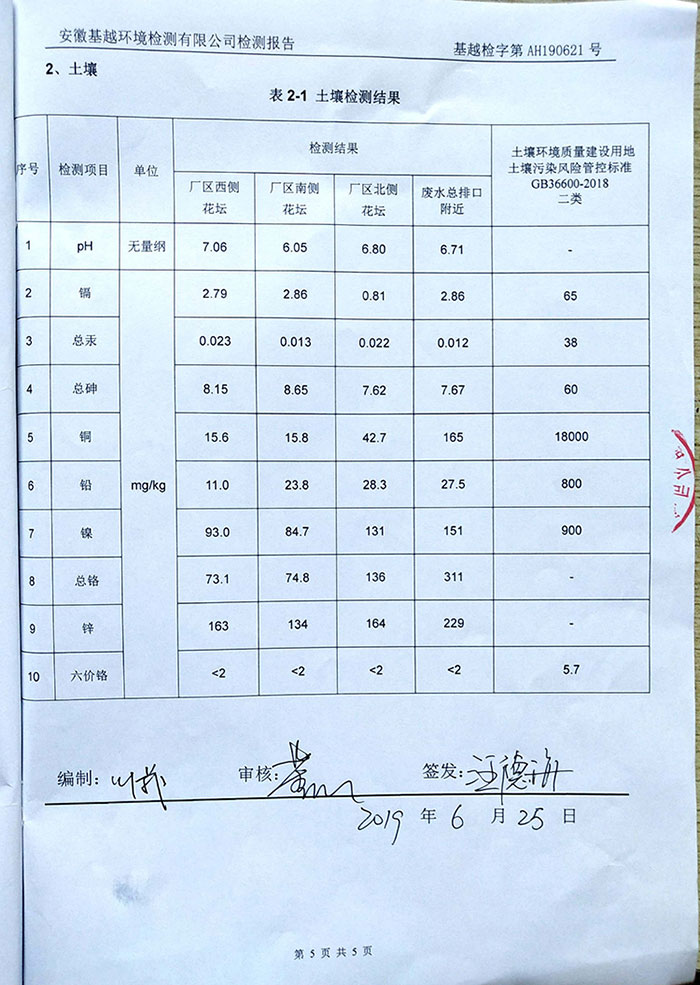 安徽基越环境检测有限公司检测报告 基越检字第 AH190621 号
2、土壤
表 2-1 土壤检测结果
序号 检测项目 单位 检测结果 土壤环境质量建设用地
土壤污染风险管控标准
GB36600-2018
二类
厂区西侧 厂区南侧 厂区北侧 废水总排口
花坛 花坛 花坛 附近
1 pH 无量纲 7.06 6.05 6.80 6.71 -
2 镉 2.79 2.86 0.81 2.86 65
3 总汞 0.023 0.013 0.022 0.012 38
4 总砷 8.15 8.65 7.62 7.67 60
5 铜 15.6 15.8 42.7 165 18000
6 铅 mg/kg 11.0 23.8 28.3 27.5 800
7 镍 93.0 84.7 131 151 900
8 总铬 73.1 74.8 136 311 -
9 锌 163 134 164 229 -
10 六价铬 <2 <2 <2 <2 5.7
编制: 审核: 签发: 汪德
2019 年 6 月 25 日
第 5 页 共 5 页